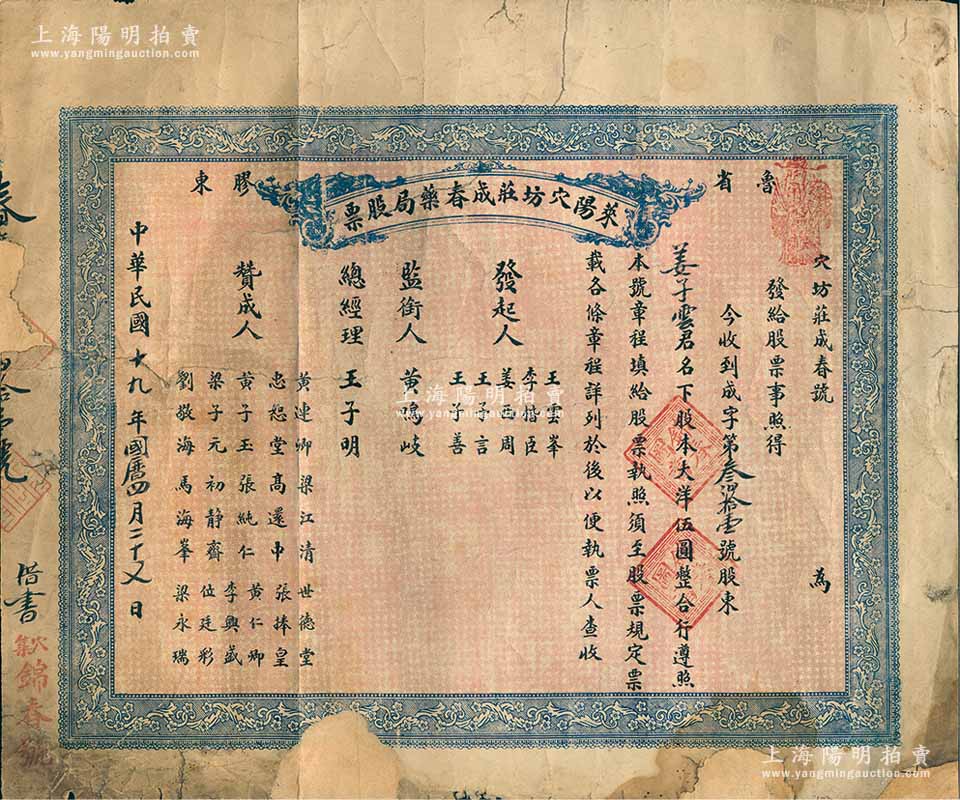 上海陽明拍賣
www.yangmingauction.com
上海陽明拍賣
www.yangmingauction.com
魯省
膠東
萊陽穴坊莊成春藥局股票
穴坊莊成春號 為
發給股票事照得
今收到成字第叁拾壹號股東
姜子雲君名下股本大洋伍圓整合行遵照
本號章程填給股票執照須至股票規定票
載各條章程詳列於後以便執票人查收
發起人
王雲峯
李澹臣
姜西周
王子言
王子善
監銜人 黃鳴岐
總經理 王子明
贊成人
黃連卿 梁江清 世德堂
忠恕堂 高還中 張捧皇
黃子玉 張純仁 黃仁卿
李興盛
梁子元 初静齋 位廷彩
劉敬海 馬海峯 梁永瑞
中華民國十九年國曆四月二十又日
春
拾壹號
借書
穴集錦春號
上海陽明拍賣
www.yangmingauction.com
上海陽明拍賣
www.yangmingauction.com